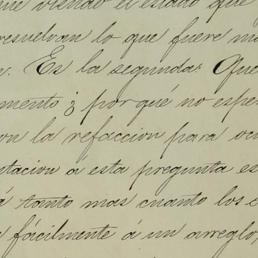 viendo el estado que
resuelvan lo que fuere m
Es la segunda: Que
mento ¿por qué no espe
on la refaccion para o
tacion a esta pregunta es
á tanto mas cuanto los c
fácilmente á un arreglo,